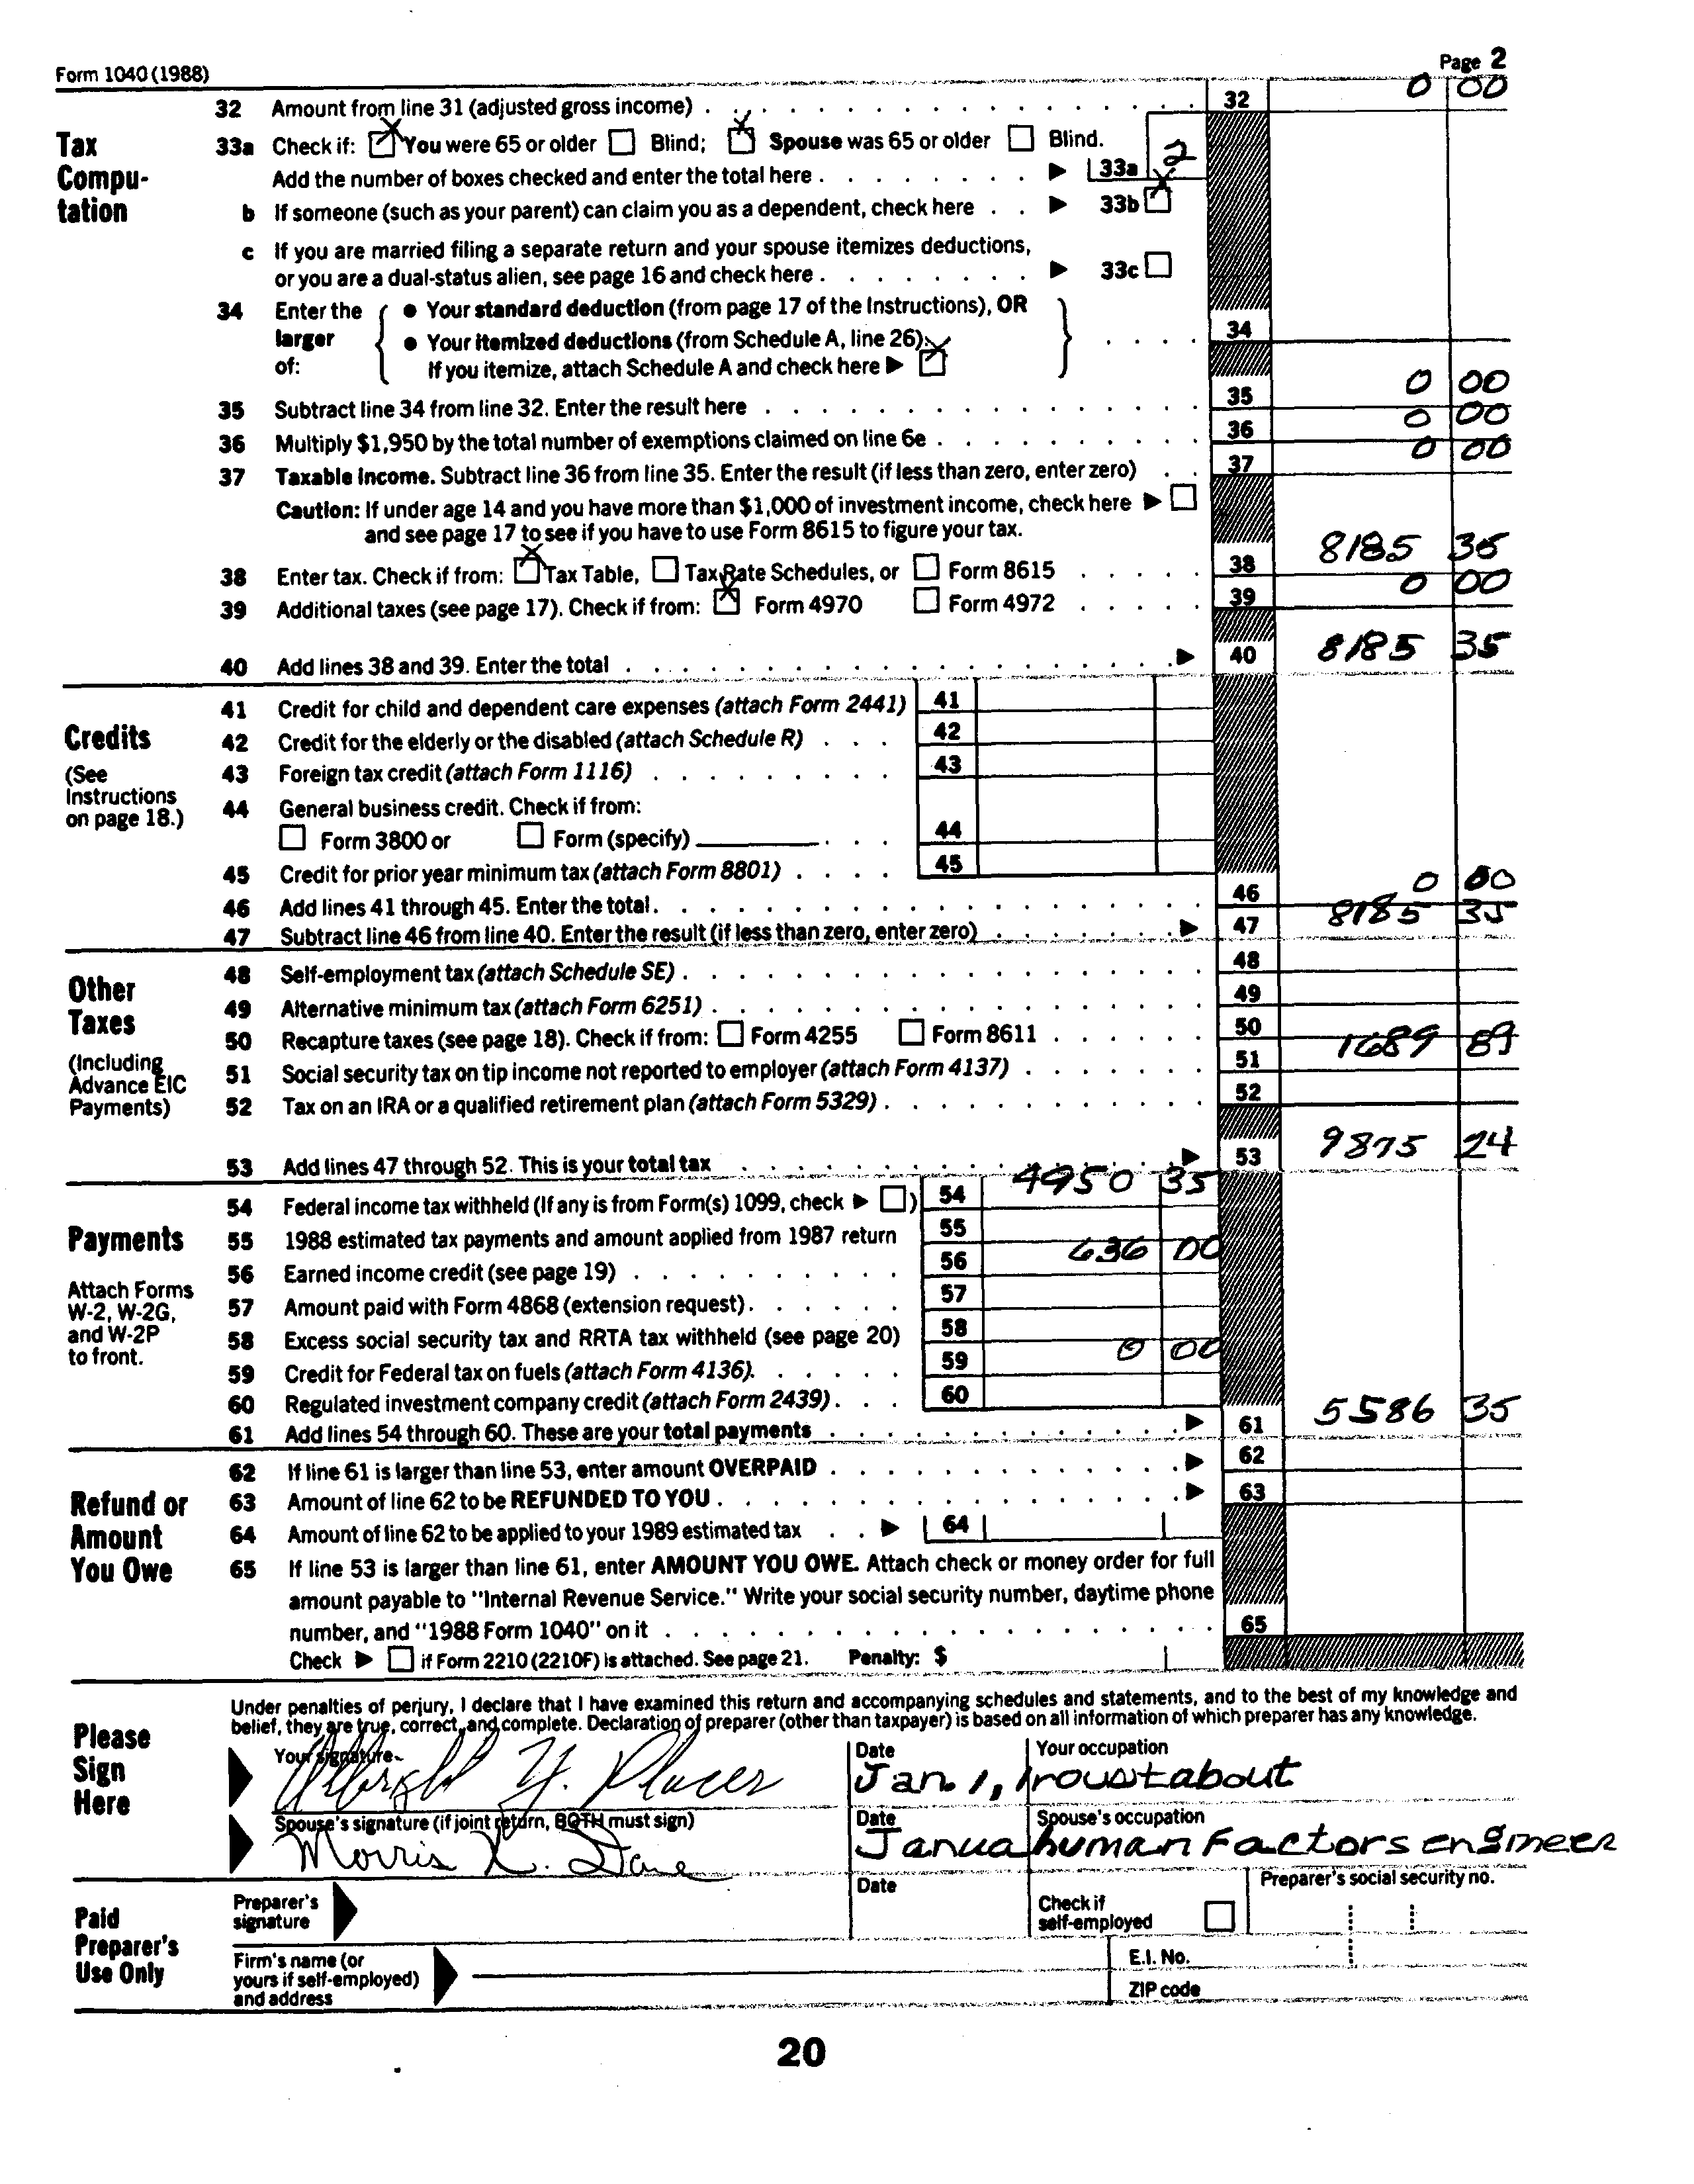 Form 1040 (1988)
Page 2
32 Amount from line 31 (adjusted gross income) 32 0 00
Tax Compu-tation
33a Check if: You were 65 or older Blind; Spouse was 65 or older Blind.
Add the number of boxes checked and enter the total here 33a 2
b If someone (such as your parent) can claim you as a dependent, check here 33b
c If you are married filing a separate return and your spouse itemizes deductions,
or you are a dual-status alien, see page 16 and check here 33c
34 Enter the larger of:
• Your standard deduction (from page 17 of the Instructions), OR
• Your itemized deductions (from Schedule A, line 26).
If you itemize, attach Schedule A and check here
34
35 Subtract line 34 from line 32. Enter the result here 35 0 00
36 Multiply $1,950 by the total number of exemptions claimed on line 6e 36 0 00
37 Taxable income. Subtract line 36 from line 35. Enter the result (if less than zero, enter zero) 37 0 00
Caution: If under age 14 and you have more than $1,000 of investment income, check here
and see page 17 to see if you have to use Form 8615 to figure your tax.
38 Enter tax. Check if from: Tax Table, Tax Rate Schedules, or Form 8615 38 8185 35
39 Additional taxes (see page 17). Check if from: Form 4970 Form 4972 39 0 00
40 Add lines 38 and 39. Enter the total 40 8185 35
Credits
(See Instructions on page 18.)
41 Credit for child and dependent care expenses (attach Form 2441) 41
42 Credit for the elderly or the disabled (attach Schedule R) 42
43 Foreign tax credit (attach Form 1116) 43
44 General business credit. Check if from:
Form 3800 or Form (specify) 44
45 Credit for prior year minimum tax (attach Form 8801) 45
46 Add lines 41 through 45. Enter the total 46 0 00
47 Subtract line 46 from line 40. Enter the result (if less than zero, enter zero) 47 8185 35
Other Taxes
(Including Advance EIC Payments)
48 Self-employment tax (attach Schedule SE) 48
49 Alternative minimum tax (attach Form 6251) 49
50 Recapture taxes (see page 18). Check if from: Form 4255 Form 8611 50
51 Social security tax on tip income not reported to employer (attach Form 4137) 51 1689 89
52 Tax on an IRA or a qualified retirement plan (attach Form 5329) 52
53 Add lines 47 through 52. This is your total tax 53 9875 24
Payments
Attach Forms W-2, W-2G, and W-2P to front.
54 Federal income tax withheld (If any is from Form(s) 1099, check ) 54 4950 35
55 1988 estimated tax payments and amount applied from 1987 return 55
56 Earned income credit (see page 19) 56 636 00
57 Amount paid with Form 4868 (extension request) 57
58 Excess social security tax and RRTA tax withheld (see page 20) 58
59 Credit for Federal tax on fuels (attach Form 4136) 59 0 00
60 Regulated investment company credit (attach Form 2439) 60
61 Add lines 54 through 60. These are your total payments 61 5586 35
Refund or Amount You Owe
62 If line 61 is larger than line 53, enter amount OVERPAID 62
63 Amount of line 62 to be REFUNDED TO YOU 63
64 Amount of line 62 to be applied to your 1989 estimated tax 64
65 If line 53 is larger than line 61, enter AMOUNT YOU OWE. Attach check or money order for full
amount payable to "Internal Revenue Service." Write your social security number, daytime phone
number, and "1988 Form 1040" on it 65
Check if Form 2210 (2210F) is attached. See page 21. Penalty: $
Please Sign Here
Under penalties of perjury, I declare that I have examined this return and accompanying schedules and statements, and to the best of my knowledge and
belief, they are true, correct, and complete. Declaration of preparer (other than taxpayer) is based on all information of which preparer has any knowledge.
Your signature Date Your occupation
Y. Placer Jan. 1, roustabout
Spouse's signature (if joint return, BOTH must sign) Date Spouse's occupation
Morris Janua human factors engineer
Paid Preparer's Use Only
Preparer's signature Date Check if self-employed Preparer's social security no.
Firm's name (or yours if self-employed) and address
E.I. No.
ZIP code
20